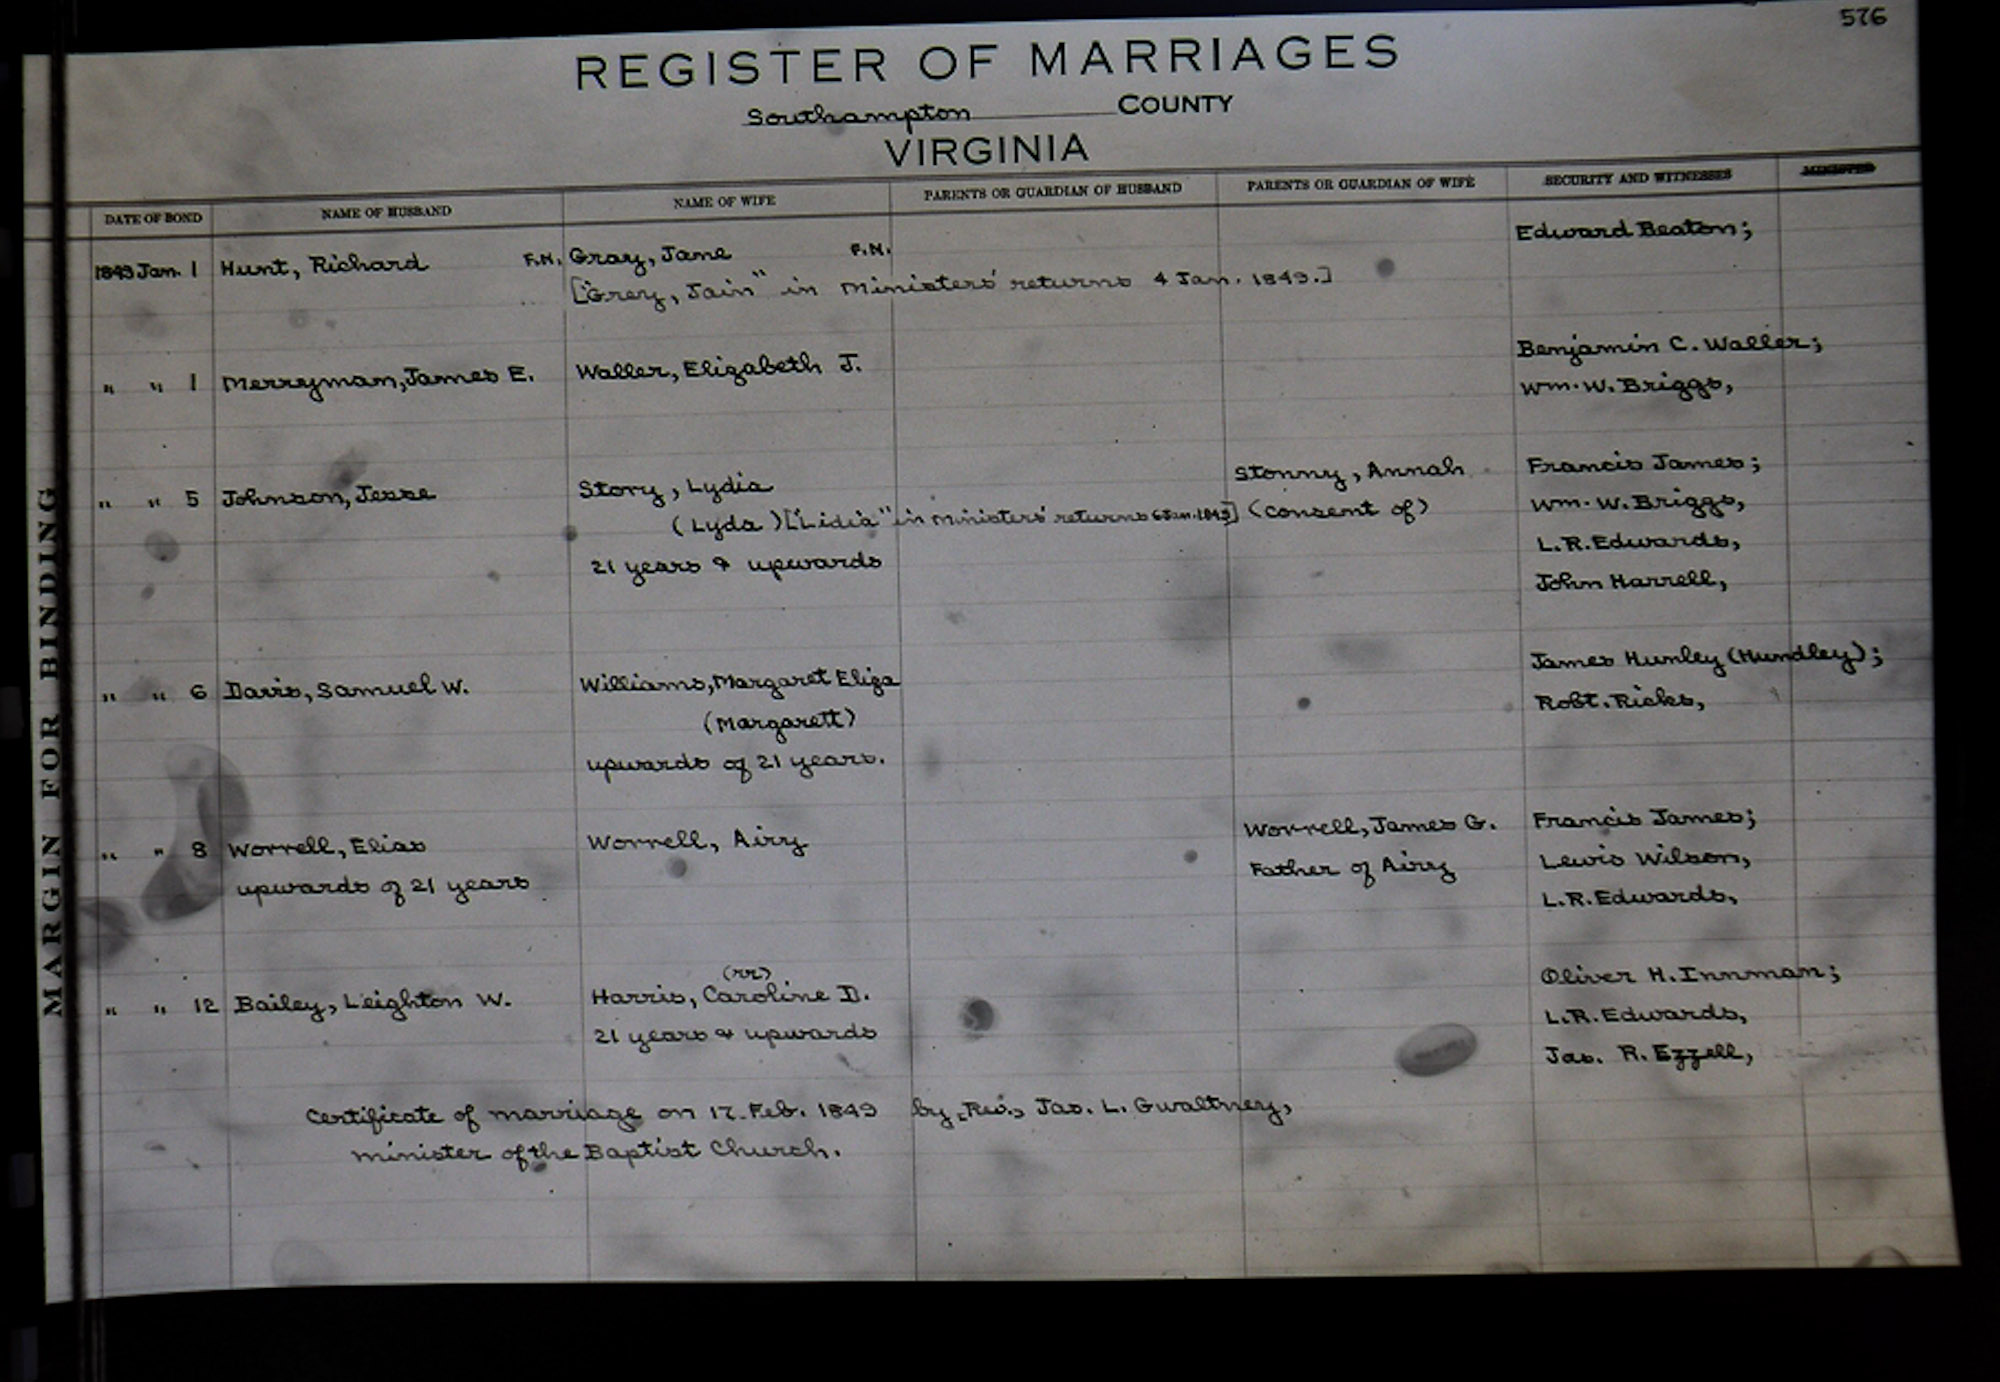 576
REGISTER OF MARRIAGES
Southampton COUNTY
VIRGINIA
DATE OF BOND NAME OF HUSBAND NAME OF WIFE PARENTS OR GUARDIAN OF HUSBAND PARENTS OR GUARDIAN OF WIFE SECURITY AND WITNESSES MINISTER
1849 Jan. 1 Hunt, Richard F.N. Gray, Jane F.N. Edward Beaton;
["Grey, Jain" in Ministers' returns 4 Jan. 1849.]
" " 1 Merryman, James E. Waller, Elizabeth J. Benjamin C. Waller;
Wm. W. Briggs,
" " 5 Johnson, Jesse Story, Lydia Stonny, Annah Francis James;
(Lyda) ["Lidia" in Ministers' returns 6 Jan. 1849] (consent of) Wm. W. Briggs,
21 years & upwards L.R. Edwards,
John Harrell,
" " 6 Davis, Samuel W. Williams, Margaret Eliza James Hunley (Hundley);
(Margarett) Robt. Ricks,
upwards of 21 years.
" " 8 Worrell, Elias Worrell, Airy Worrell, James G. Francis James;
upwards of 21 years Father of Airy Lewis Wilson,
L.R. Edwards,
(rr)
" " 12 Bailey, Leighton W. Harris, Caroline D. Oliver H. Innman;
21 years & upwards L.R. Edwards,
Jas. R. Ezzell,
Certificate of marriage on 17. Feb. 1849 by, Rev., Jas. L. Gwaltney,
minister of the Baptist Church.
MARGIN FOR BINDING